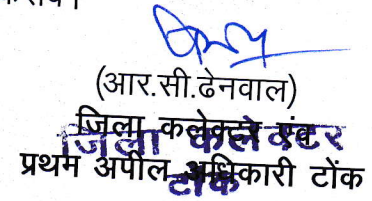 (आर.सी.ढेनवाल)
जिला कलेक्टर एवं
प्रथम अपील अधिकारी टोंक
जिला कलेक्टर
टोंक